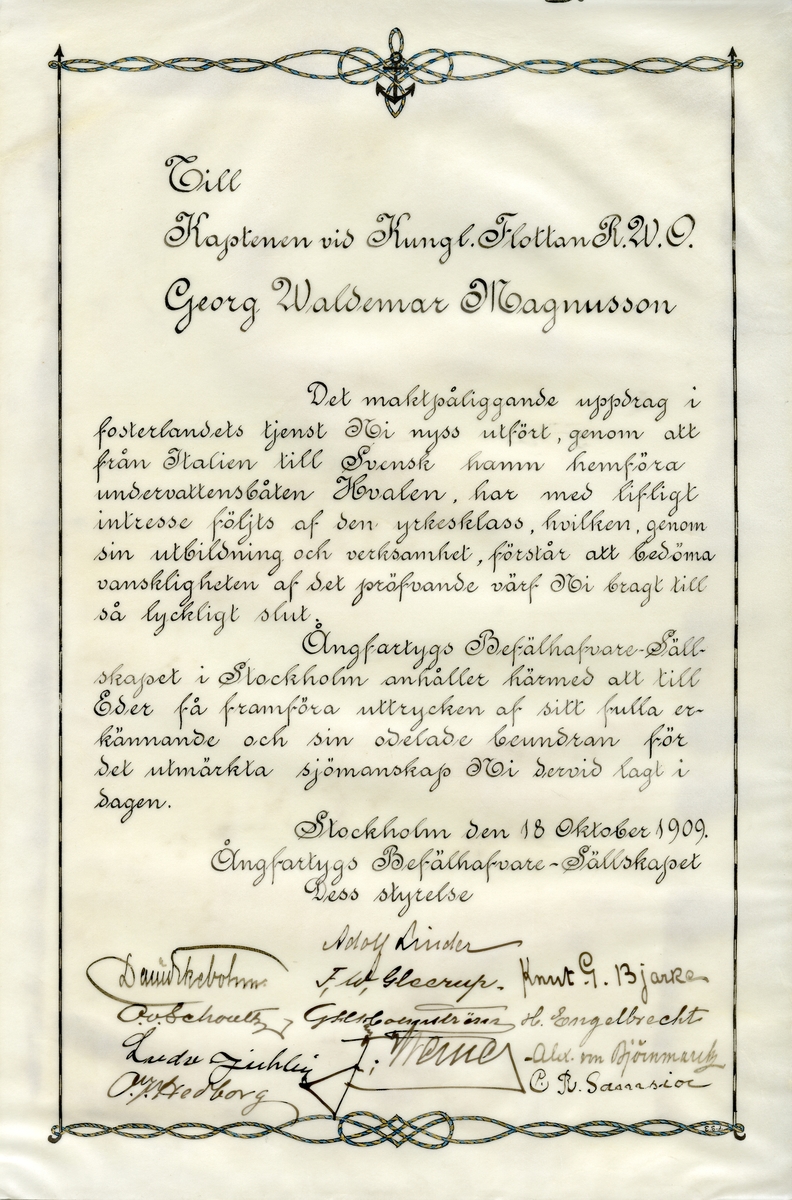 Till
Kaptenen vid Kungl. Flottan R.W.O.
Georg Waldemar Magnusson
Det maktpåliggande uppdrag i
fosterlandets tjenst Ni nyss utfört, genom att
från Italien till Svensk hamn hemföra
undervattensbåten Hvalen, har med lifligt
intresse följts af den yrkesklass, hvilken, genom
sin utbildning och verksamhet, förstår att bedöma
vanskligheten af det pröfvande värf Ni bragt till
så lyckligt slut.
Ångfartygs Befälhafvare-Säll-
skapet i Stockholm anhåller härmed att till
Eder få framföra uttrycken af sitt fulla er-
kännande och sin odelade beundran för
det utmärkta sjömanskap Ni dervid lagt i
dagen.
Stockholm den 18 Oktober 1909.
Ångfartygs Befälhafvare-Sällskapet
Dess styrelse
Adolf Linder
F. W. Gleerup. Knut G. Bjarke
O. v. Schoultz H. Engelbrecht
Werner Alex. von Björnmarck
Hedborg C. R. Samsioe